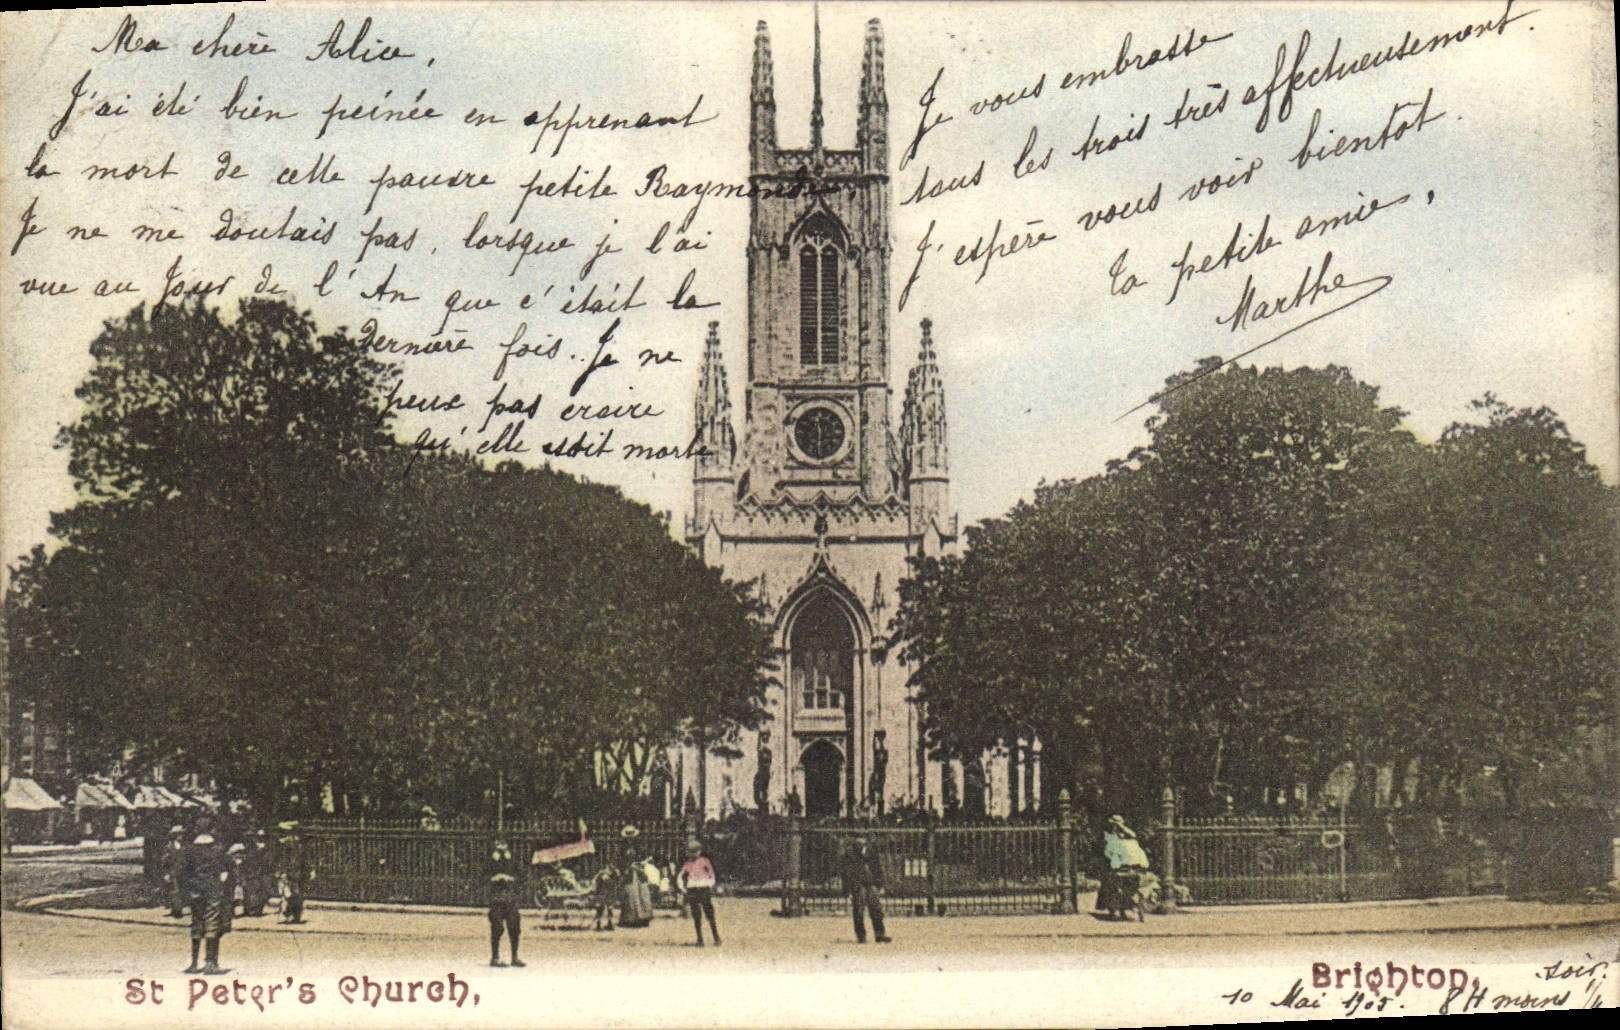 Ma chère Alice,
J'ai été bien peinée en apprenant
la mort de cette pauvre petite Raymonde,
Je ne me doutais pas, lorsque je l'ai
vue au Jour de l'An que c'était la
dernière fois. Je ne
peux pas croire
qu'elle soit morte
Je vous embrasse
tous les trois très affectueusement.
J'espère vous voir bientôt.
Ta petite amie,
Marthe
St Peter's Church,
Brighton,
10 Mai 1905. 8H moins 1/4
soir.